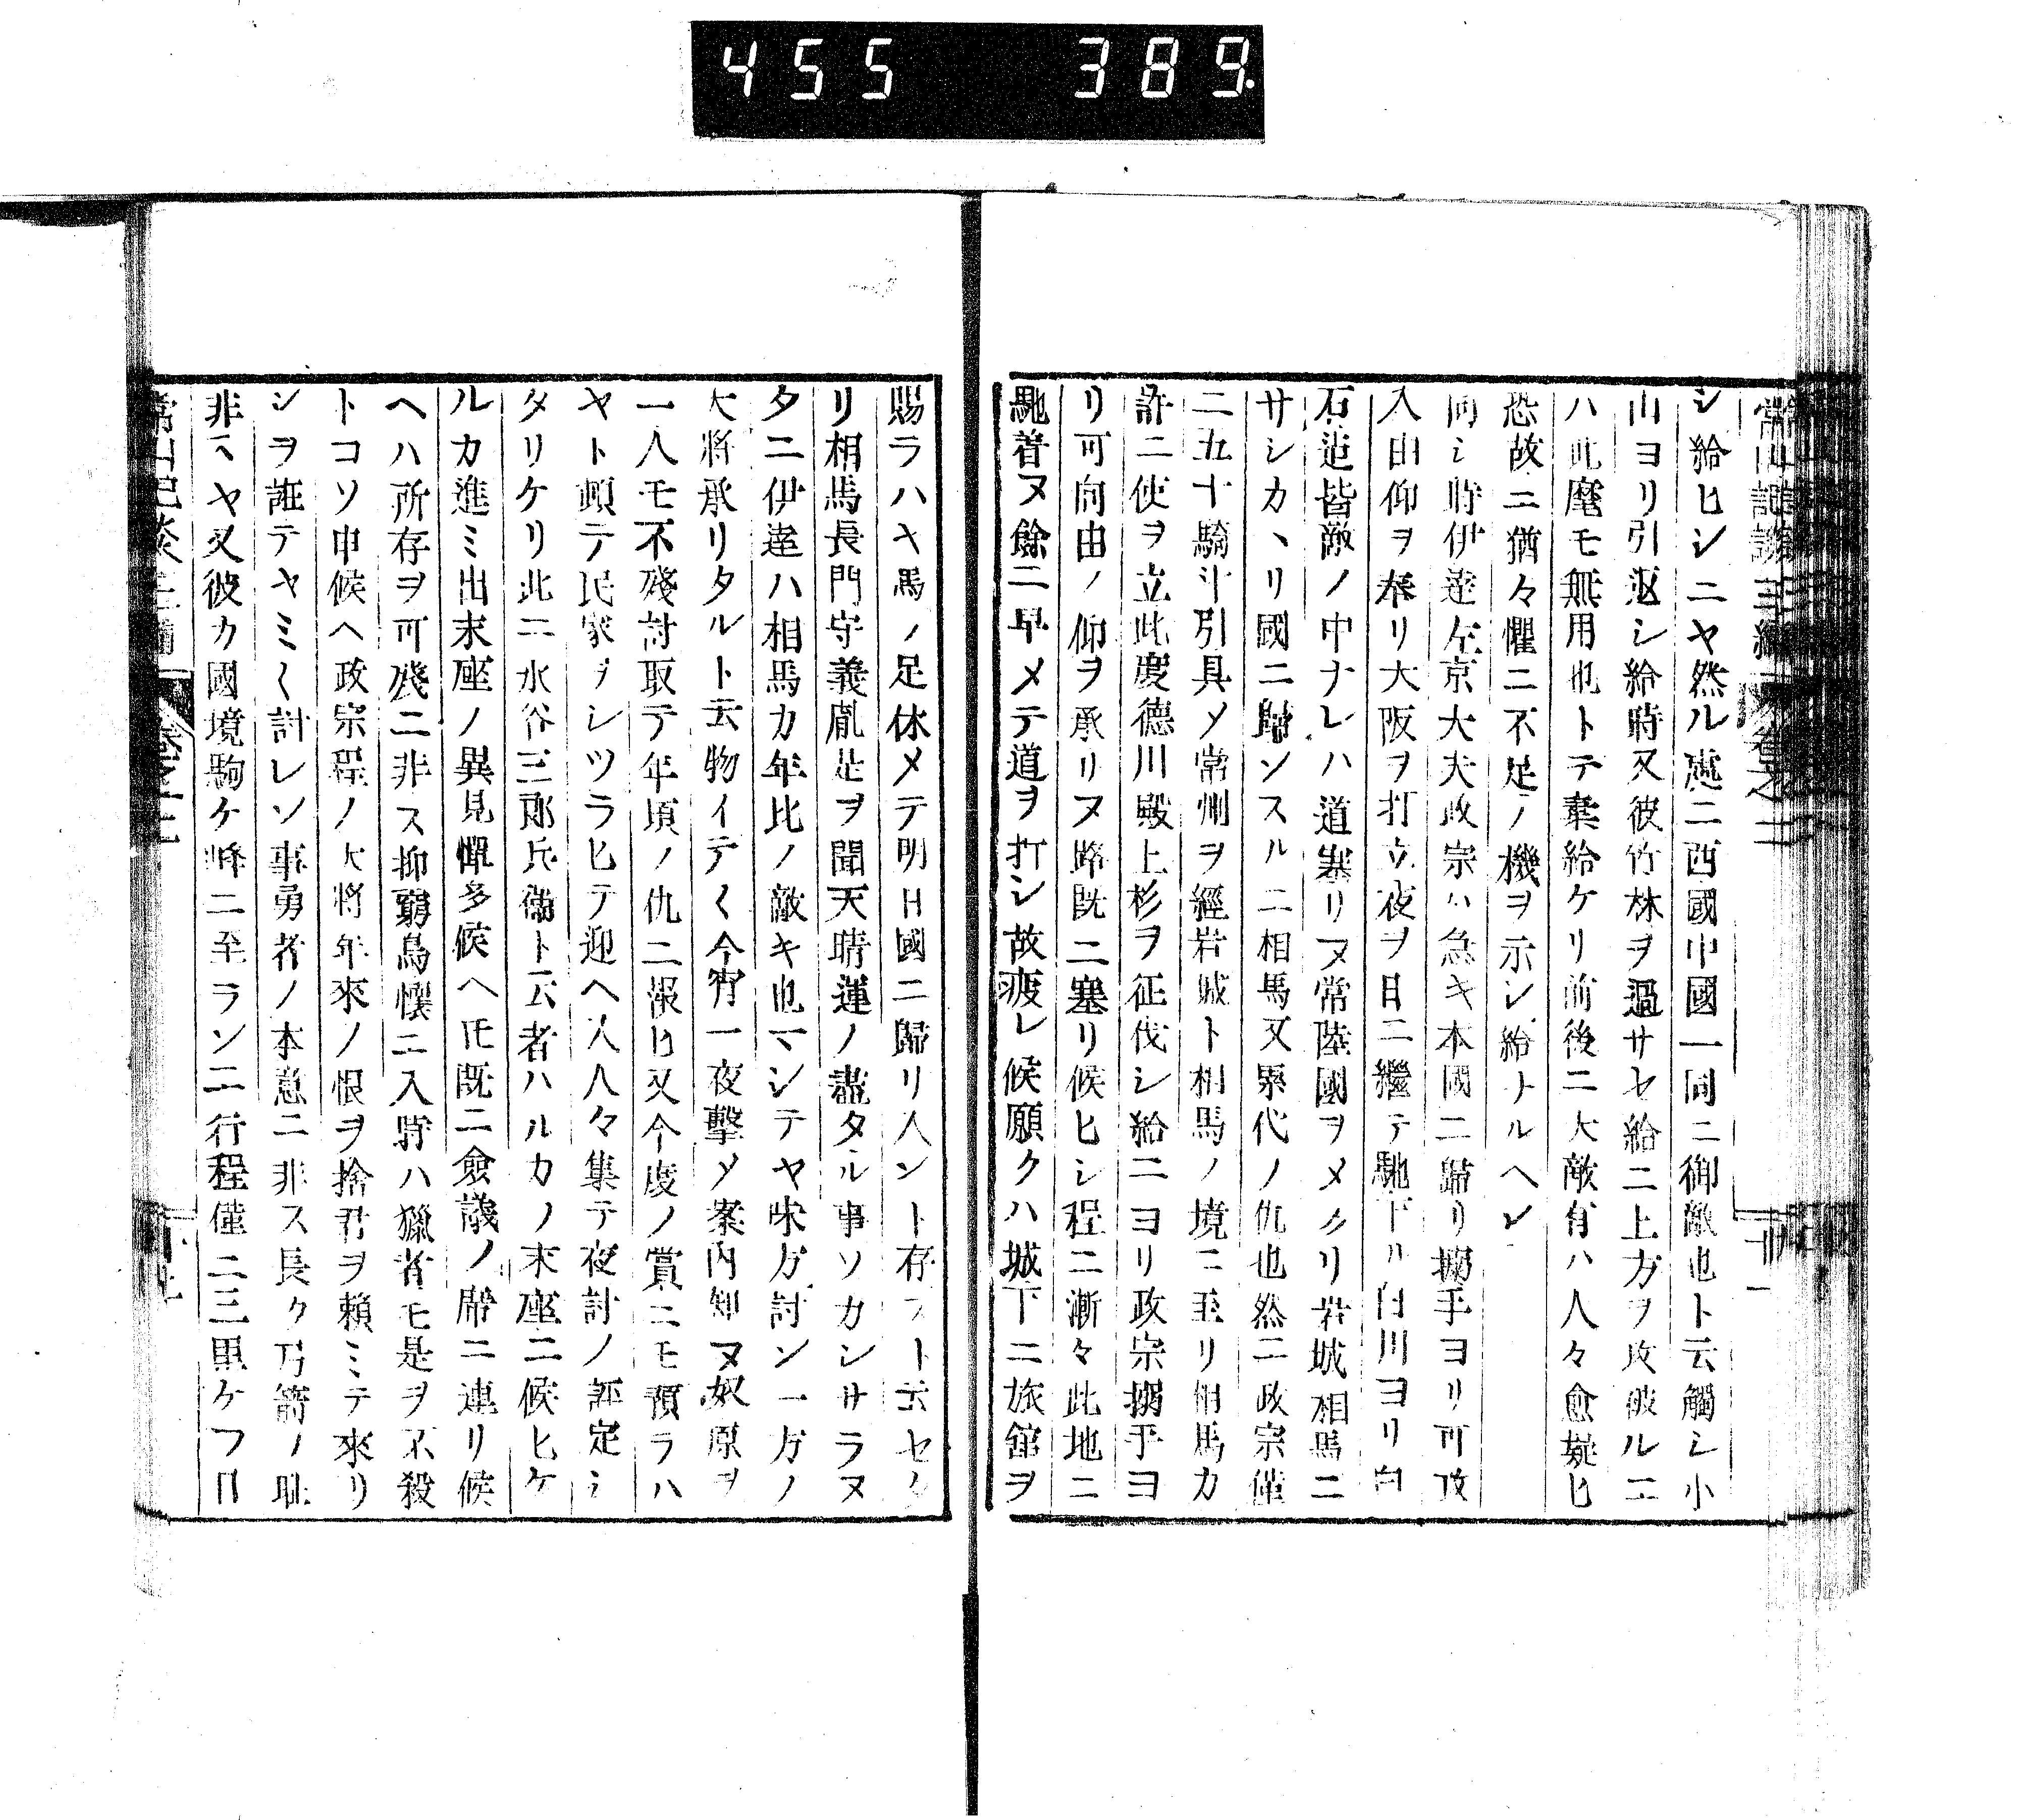 455 389
常山記談三編 卷之二
シ給ヒシニヤ然ル處ニ西國中國一同ニ御敵也ト云觸シ小
山ヨリ引返シ給時又彼竹林ヲ過サセ給ニ上方ヲ攻破ルニ
ハ此麾モ無用也トテ棄給ケリ前後ニ大敵有ハ人々愈疑ヒ
恐故ニ猶々懼ニ不足ノ機ヲ示シ給トルヘシ
同シ時伊達左京大夫政宗ハ急キ本國ニ歸リ搦手ヨリ可攻
入由仰ヲ奉リ大阪ヲ打立夜ヲ日ニ繼テ馳下ル白川ヨリ白
石迠皆敵ノ中ナレハ道塞リヌ常陸國ヲメクリ岩城相馬ニ
サシカヽリ國ニ歸ンスルニ相馬又累代ノ仇也然ニ政宗僅
ニ五十騎斗引具メ常州ヲ經岩城ト相馬ノ境ニ至リ相馬カ
許ニ使ヲ立此度德川殿上杉ヲ征伐シ給ニヨリ政宗搦手ヨ
リ可向由ノ仰ヲ承リヌ路既ニ塞リ候ヒシ程ニ漸々此地ニ
馳着ヌ餘ニ早メテ道ヲ打シ故疲レ候願クハ城下ニ旅舘ヲ
賜ラハヤ馬ノ足休メテ明日國ニ歸リ入ント存スト云セタ
リ相馬長門守義胤是ヲ聞天晴運ノ盡タル事ソカシサラヌ
タニ伊達ハ相馬カ年比ノ敵キ也マシテヤ味方討ン一方ノ
大將承リタルト云物イテ〱今宵一夜撃メ案内知ヌ奴原ヲ
一人モ不殘討取テ年頃ノ仇ニ報ヒ又今度ノ賞ニモ預ラハ
ヤト頓テ民家ヲシツラヒテ迎ヘ入人々集テ夜討ノ評定シ
タリケリ此ニ水谷三郎兵衞ト云者ハルカノ末座ニ候ヒケ
ルカ進ミ出末座ノ異見憚多候ヘ𪜈既ニ僉議ノ席ニ連リ候
ヘハ所存ヲ可殘ニ非ス抑窮鳥懷ニ入時ハ獵者モ是ヲ不殺
トコソ申候ヘ政宗程ノ大將年來ノ恨ヲ捨君ヲ頼ミテ來リ
シヲ誑テヤミ〱討レソ事勇者ノ本意ニ非ス長ク弓箭ノ耻
非スヤ又彼カ國境駒ケ峰ニ至ランニ行程僅ニ三里ケフ日